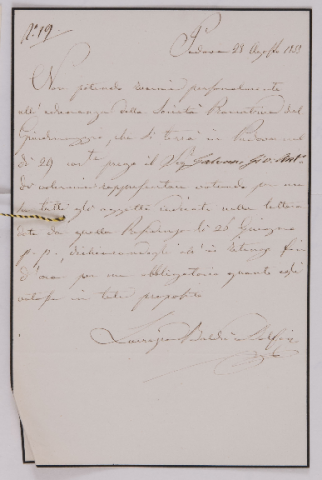 N.° 19.
Padova 28 Agosto 1853
Non potendo venire personalmente
all'adunanza della Società Promotrice del
Giardinaggio, che si terrà in Padova nel
dì 29 corr.te prego il Sig.
di volermi rappresentare votando per me
su tutti gli oggetti indicati nella lettera
di quella Presidenza di 26 Giugno
p. p., dichiarandogli ch'io ritengo fin
d'ora per me obbligatorio quanto egli
in tale proposito